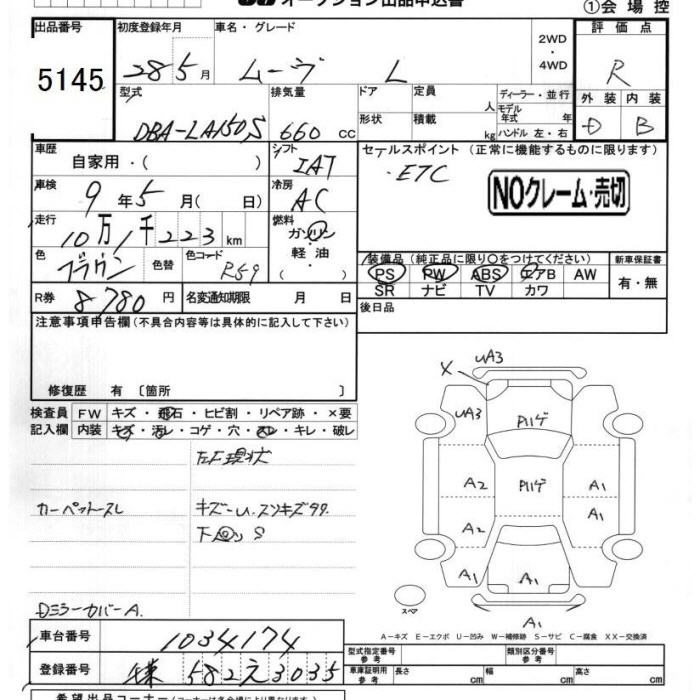 オークション出品申込書
①会場控
出品番号
5145
初度登録年月
28 5月
車名・グレード
ムーヴ L
2WD
・
4WD
評価点
R
型式
DBA-LA150S
排気量
660 cc
ドア
形状
定員
人
積載
kg
ディーラー・並行
モデル年式 年
ハンドル 左・右
外装 内装
D B
車歴
自家用・( )
シフト
IAT
セールスポイント (正常に機能するものに限ります)
・ETC
NOクレーム・売切
車検
9年5月( 日)
冷房
AC
走行
10万1千223km
燃料
ガソリン
・
軽油
・
( )
色
ブラウン
色替
色コード
R59
装備品 (純正品に限り○をつけてください)
PS PW ABS エアB AW
SR ナビ TV カワ
新車保証書
有・無
R券
8780円
名変通知期限 月 日
後日品
注意事項申告欄(不具合内容等は具体的に記入して下さい)
修復歴 有 〔箇所 〕
検査員
記入欄
FW キズ・飛石・ヒビ割・リペア跡・×要
内装 キズ・汚レ・コゲ・穴・スレ・キレ・破レ
下廻現状
カーペットスレ
キズ-U.スリキズ99.
下回り S
Dミラーカバー A.
X UA3
UA3
Pハゲ
A2 Pハゲ A1
A2 A1
A1 A1
スペア
A1
A-キズ E-エクボ U-凹み W-補修跡 S-サビ C-腐食 XX-交換済
車台番号
1034174
登録番号
582 え 3035
型式指定番号
参考
類別区分番号
参考
車庫証明用
参考
長さ cm
幅 cm
高さ cm
希望出品コーナー